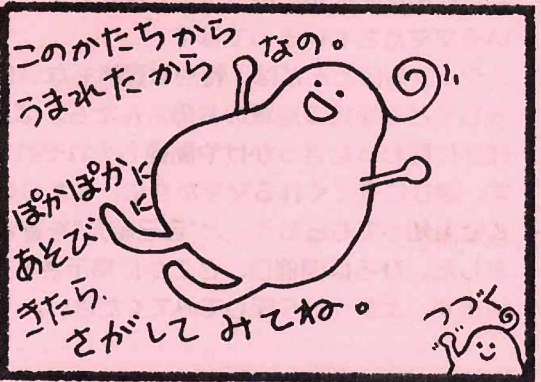 このかたちから
うまれたから なの。
ぽかぽかに
あそびに
きたら、
さがして みてね。
つづく